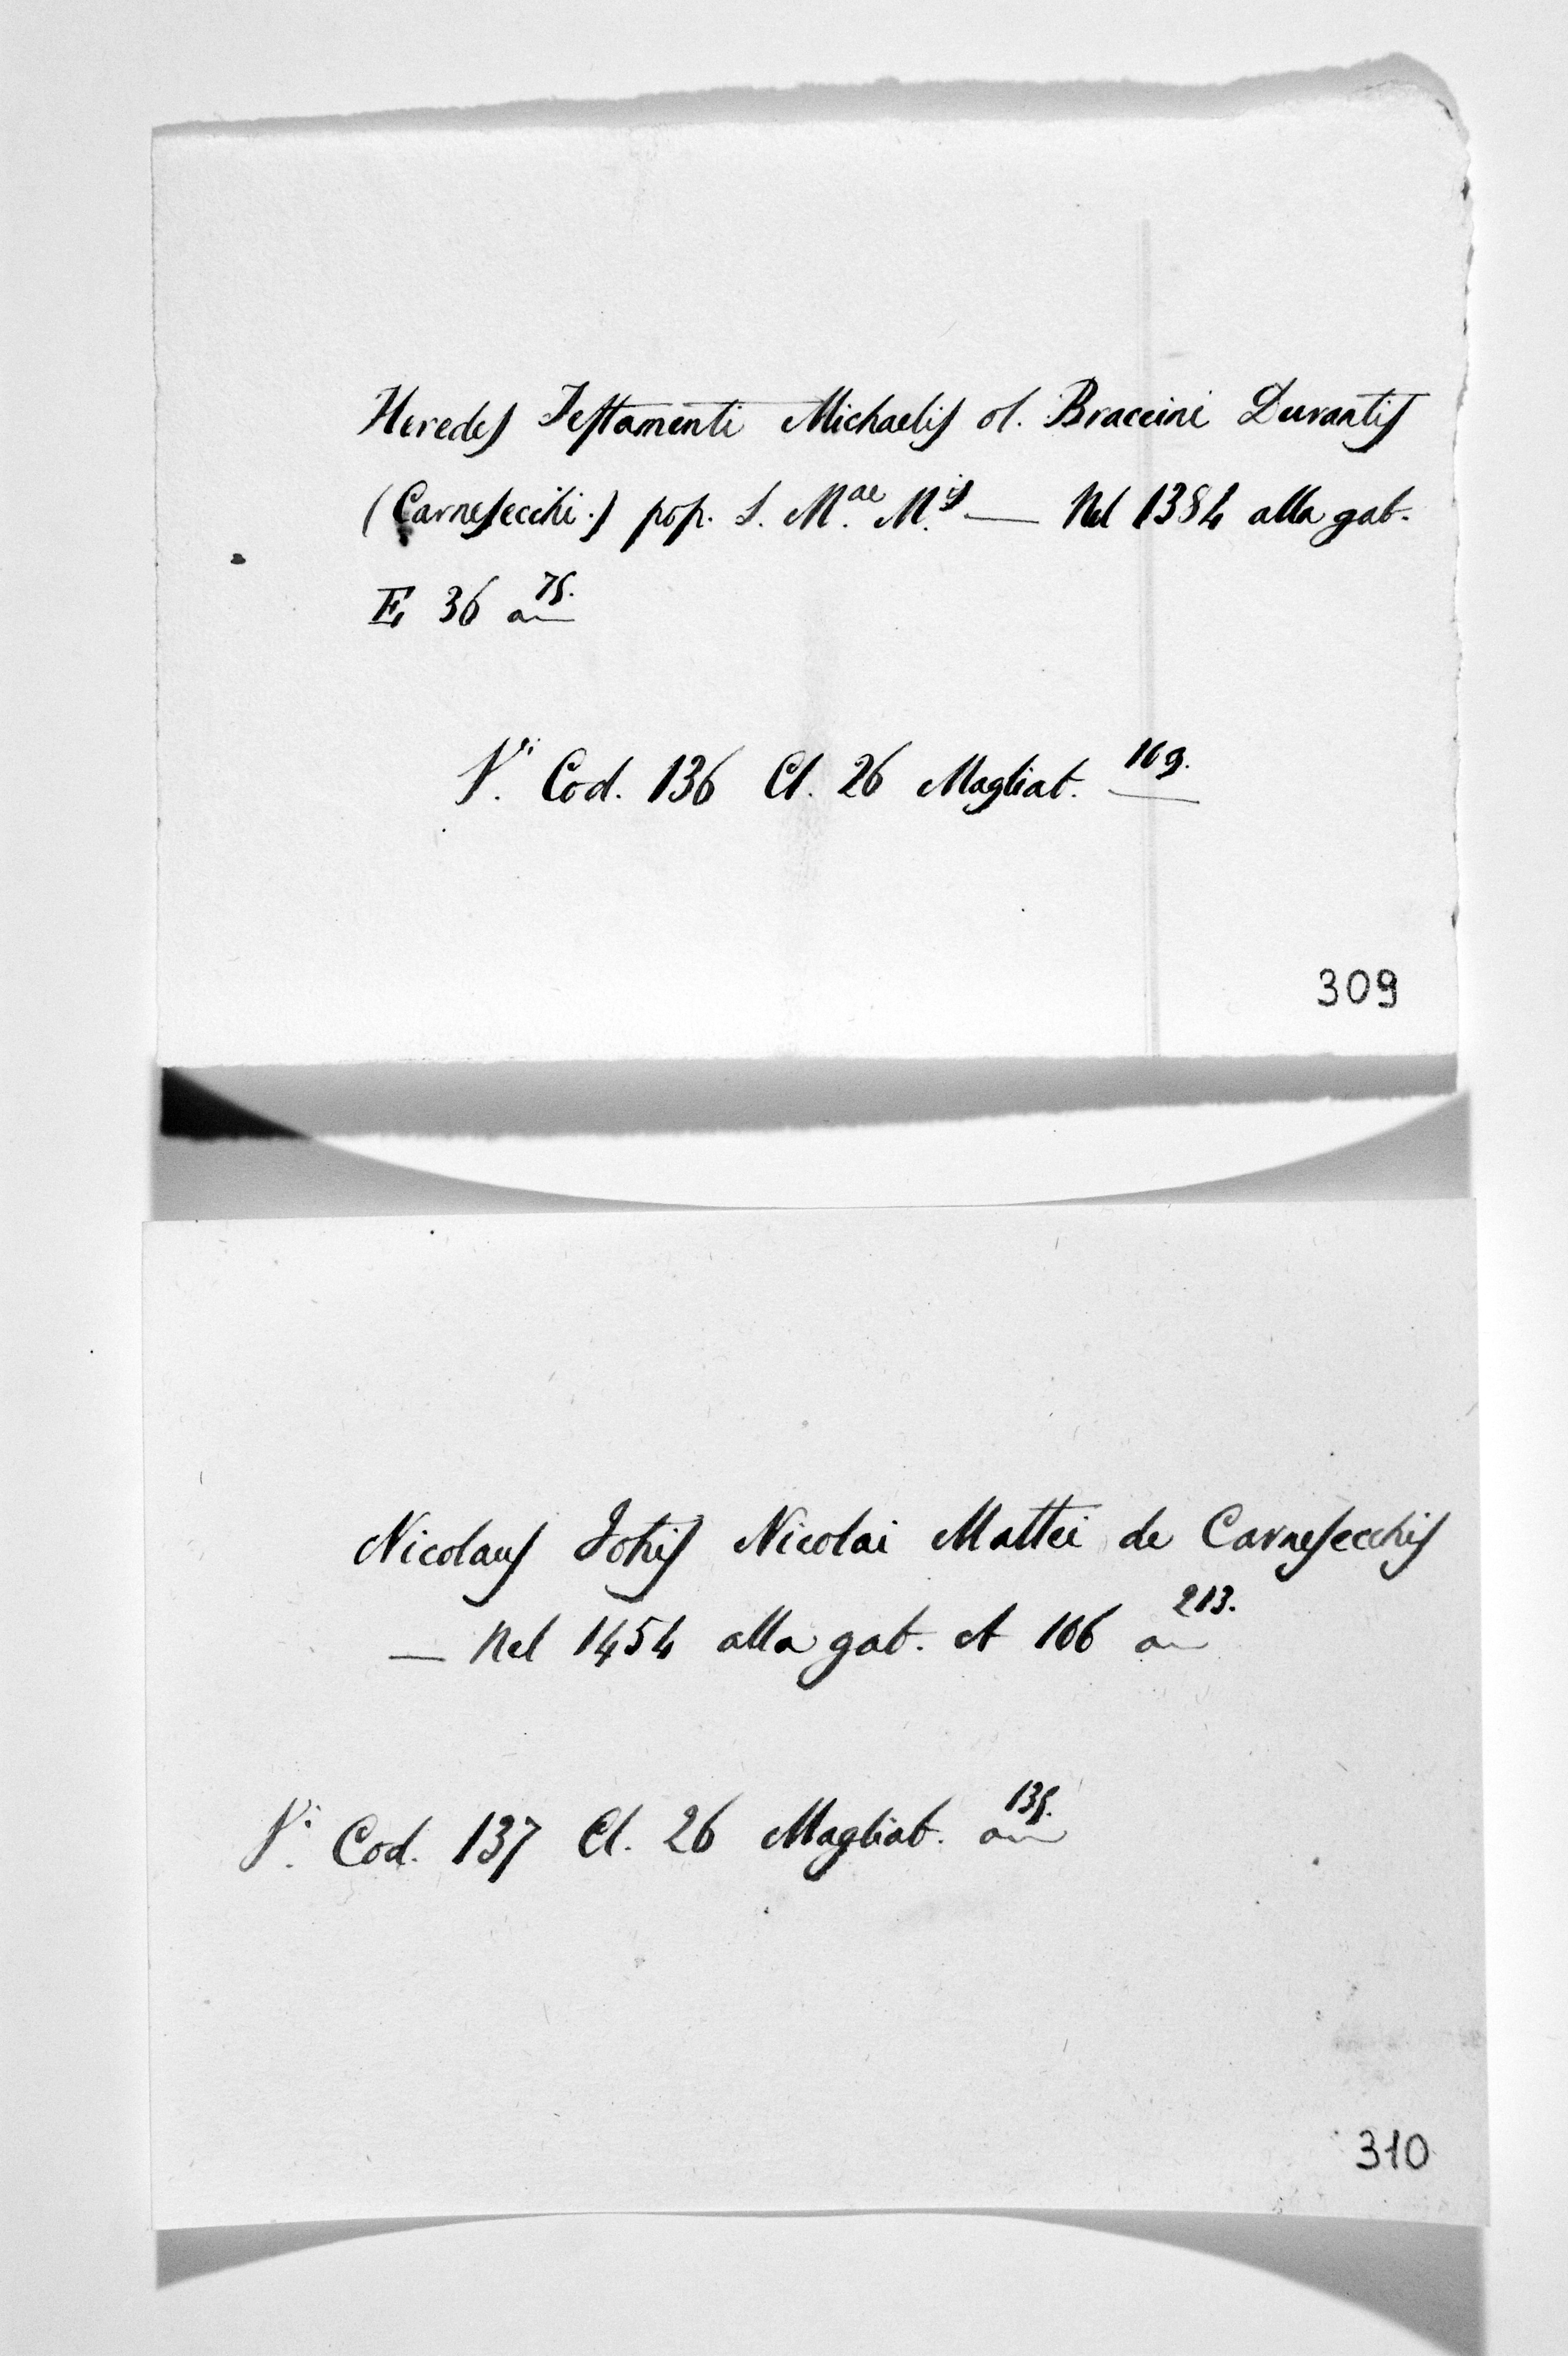 Heredes Testamenti Michaelis ol. Braccini Durantis
(Carnesecchi.) pop. S. M.ae M.is — Nel 1384 alla gab.
E 36 a 75.
V.i Cod. 136 Cl. 26 Magliab. 109.
309
Nicolaus Johis Nicolai Mattei de Carnesecchis
— Nel 1454 alla gab. A 106 a 213.
V.i Cod. 137 Cl. 26 Magliab. a 135.
310